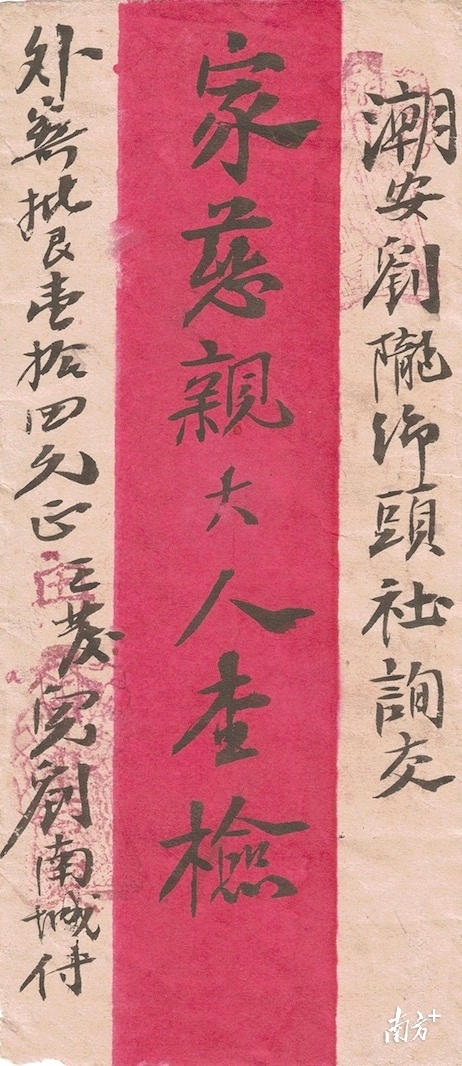 潮安劉隴師頭社詢交
家慈親大人查檢
外寄批艮壹拾四元正 劉南城付
南方+